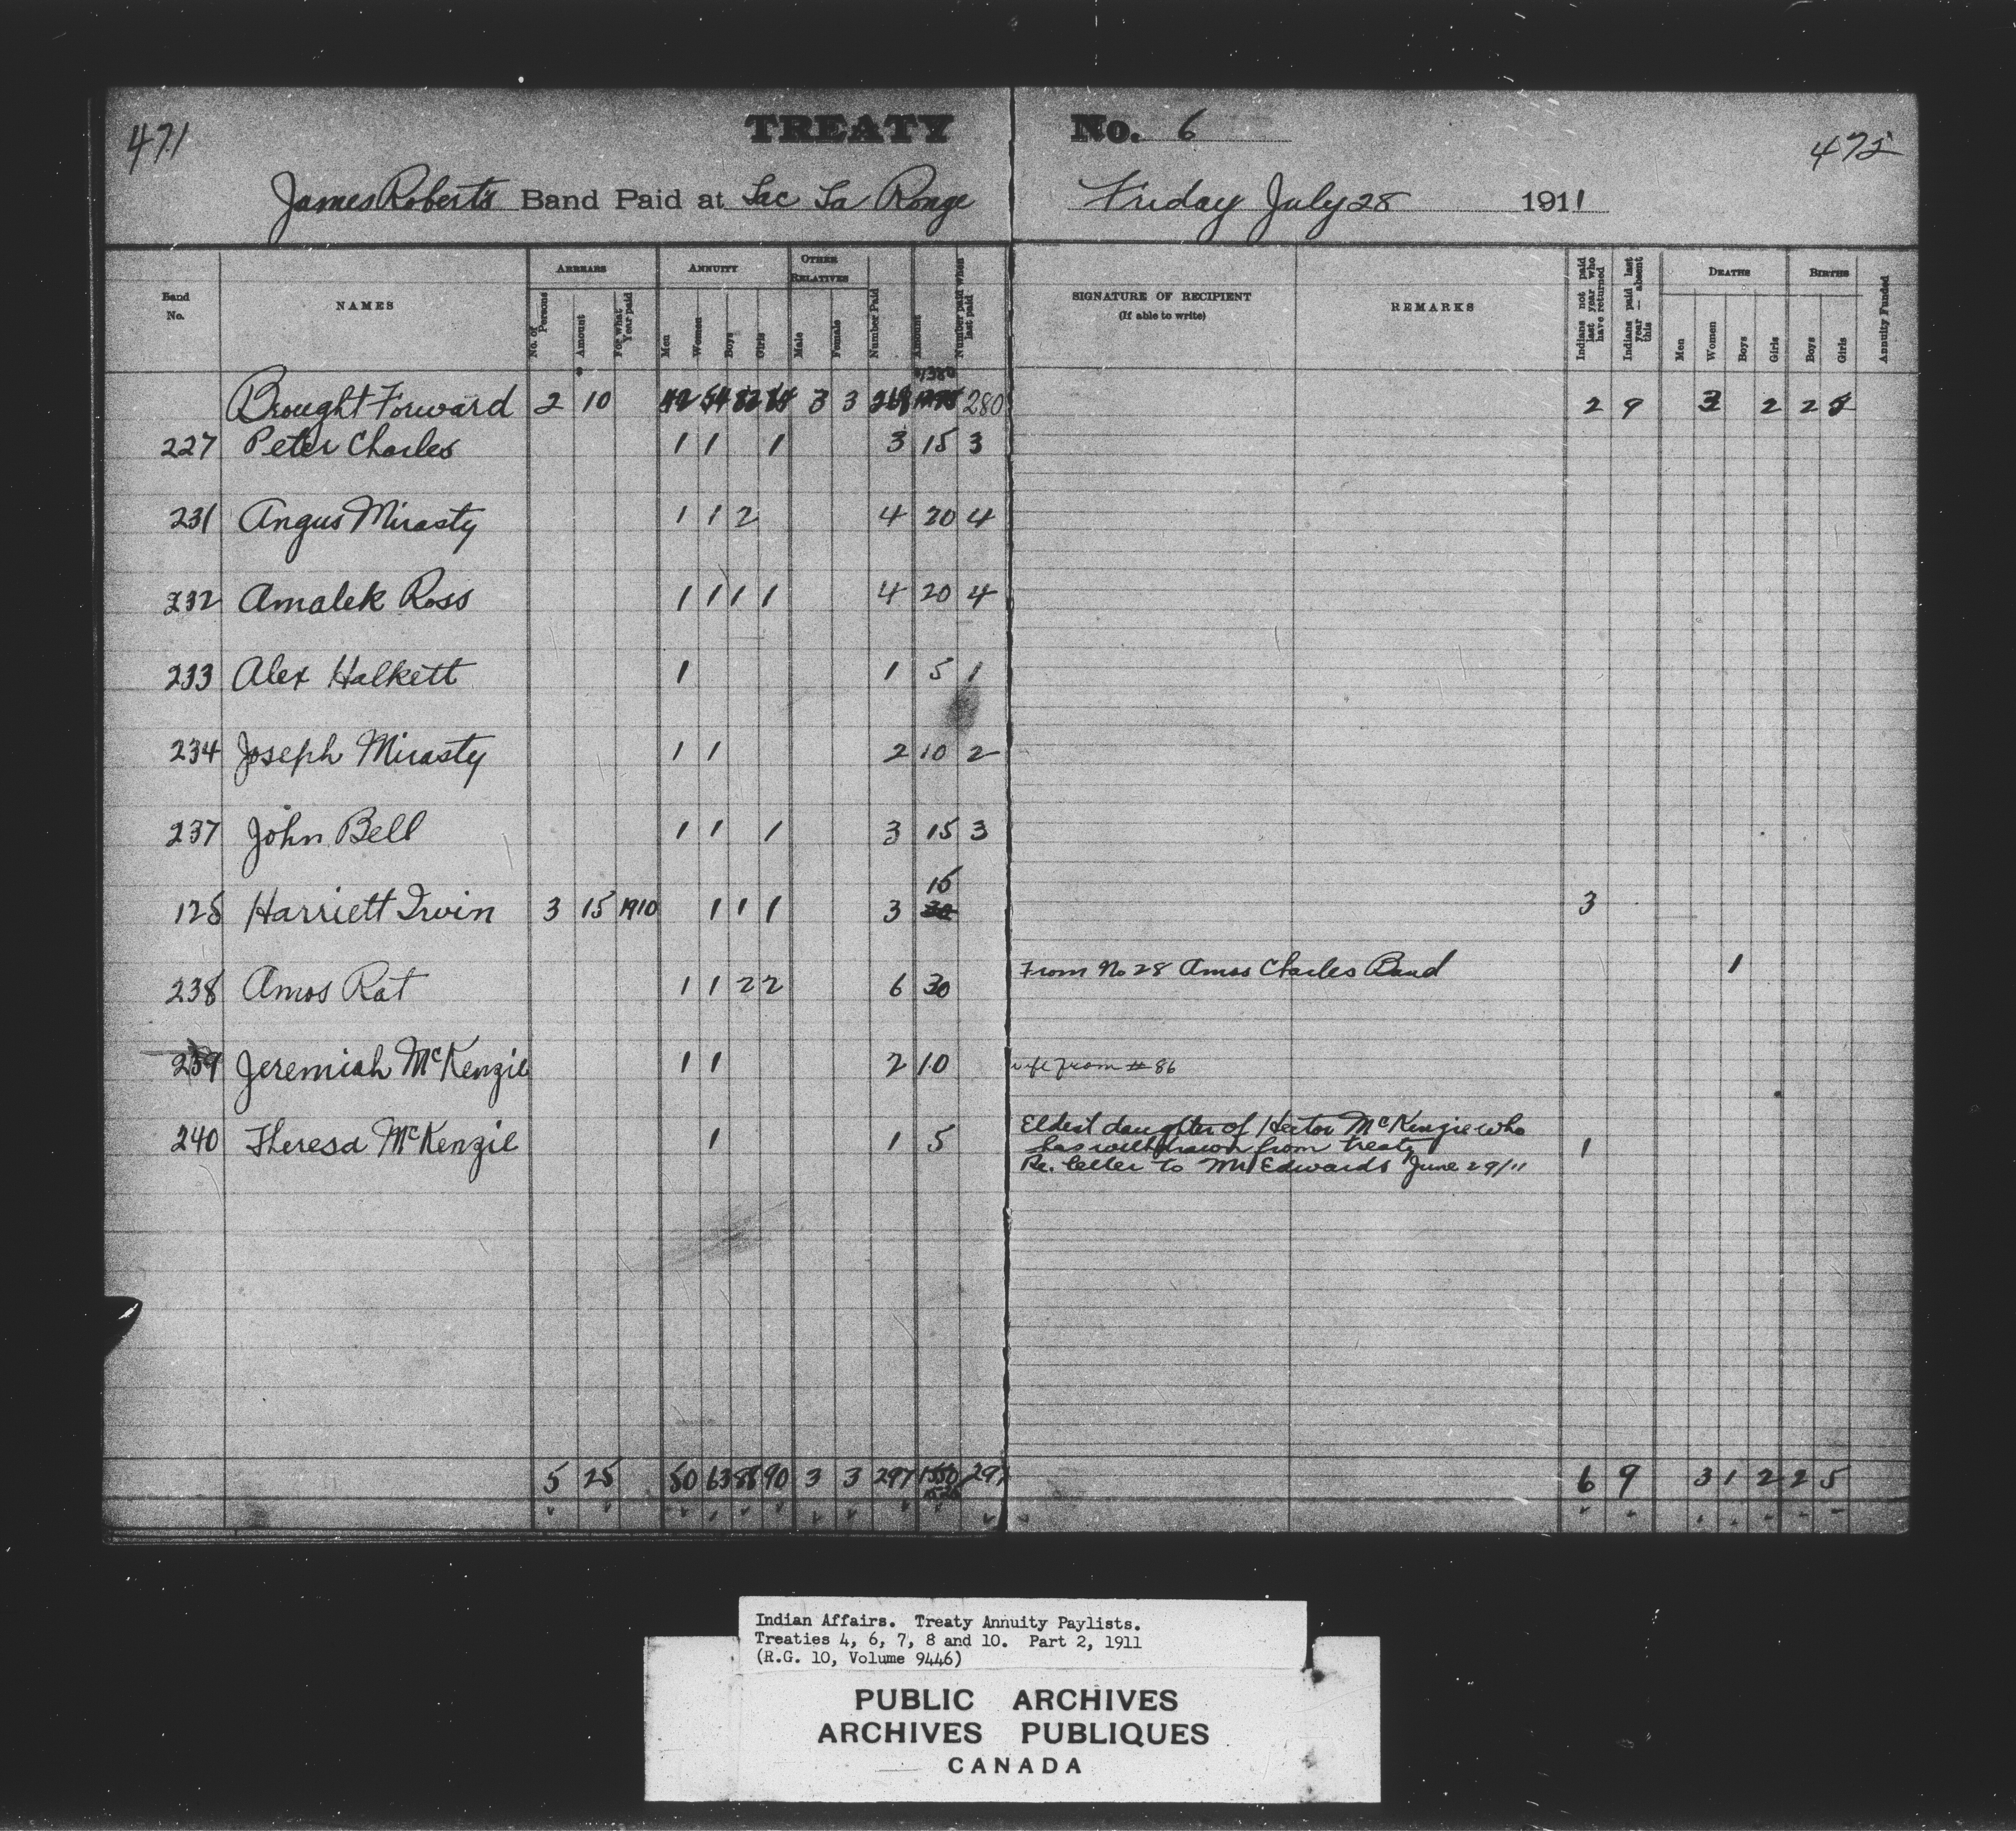 471
TREATY No. 6
475
James Roberts Band Paid at Lac La Ronge Friday July 28 1911
Band No.
NAMES
ARREARS
No. of Persons
Amount
For what Year paid
ANNUITY
Men
Women
Boys
Girls
OTHER RELATIVES
Male
Female
Number Paid
Amount
Number paid when last paid
SIGNATURE OF RECIPIENT
(If able to write)
REMARKS
Indians not paid last year who have returned
Indians paid last year — absent this
DEATHS
Men
Women
Boys
Girls
BIRTHS
Boys
Girls
Annuity Funded
1380
Brought Forward 2 10 3 3 268 280 2 9 2 2
227 Peter Charles 1 1 1 3 15 3
231 Angus Mirasty 1 1 2 4 20 4
232 Amalek Ross 1 1 1 1 4 20 4
233 Alex Halkett 1 1 5 1
234 Joseph Mirasty 1 1 2 10 2
237 John Bell 1 1 1 3 15 3
15
128 Harriett Irvin 3 15 1910 1 1 1 3 30 3
238 Amos Rat 1 1 2 2 6 30 From No 28 Amos Charles Band 1
239 Jeremiah McKenzie 1 1 2 10 wife from # 86
240 Theresa McKenzie 1 1 5 Eldest daughter of Hector McKenzie who
has withdrawn from treaty 1
Re. letter to Mr Edwards June 29/11
5 25 50 63 88 90 3 3 297 1550 297 6 9 3 1 2 2 5
Indian Affairs. Treaty Annuity Paylists.
Treaties 4, 6, 7, 8 and 10. Part 2, 1911
(R.G. 10, Volume 9446)
PUBLIC ARCHIVES
ARCHIVES PUBLIQUES
CANADA